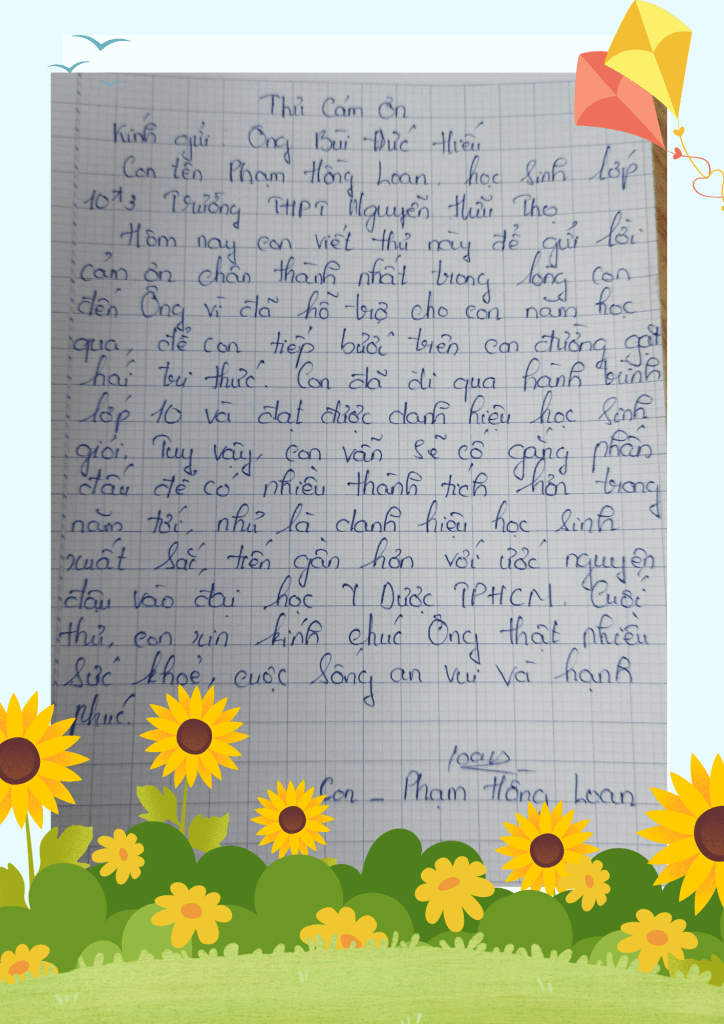 Thư Cảm ơn
Kính gửi Ông Bùi Đức Hiếu
Con tên Phạm Hồng Loan, học sinh lớp
10A3 Trường THPT Nguyễn Hữu Thọ
Hôm nay con viết thư này để gửi lời
cảm ơn chân thành nhất trong lòng con
đến Ông vì đã hỗ trợ cho con năm học
qua, để con tiếp bước trên con đường gặt
hái tri thức. Con đã đi qua hành trình
lớp 10 và đạt được danh hiệu học sinh
giỏi. Tuy vậy, con vẫn sẽ cố gắng phấn
đấu để có nhiều thành tích hơn trong
năm tới, như là danh hiệu học sinh
xuất sắc, tiến gần hơn với ước nguyện
đậu vào đại học Y Dược TPHCM. Cuối
thư, con xin kính chúc Ông thật nhiều
sức khoẻ, cuộc sống an vui và hạnh
phúc.
Loan
Con - Phạm Hồng Loan